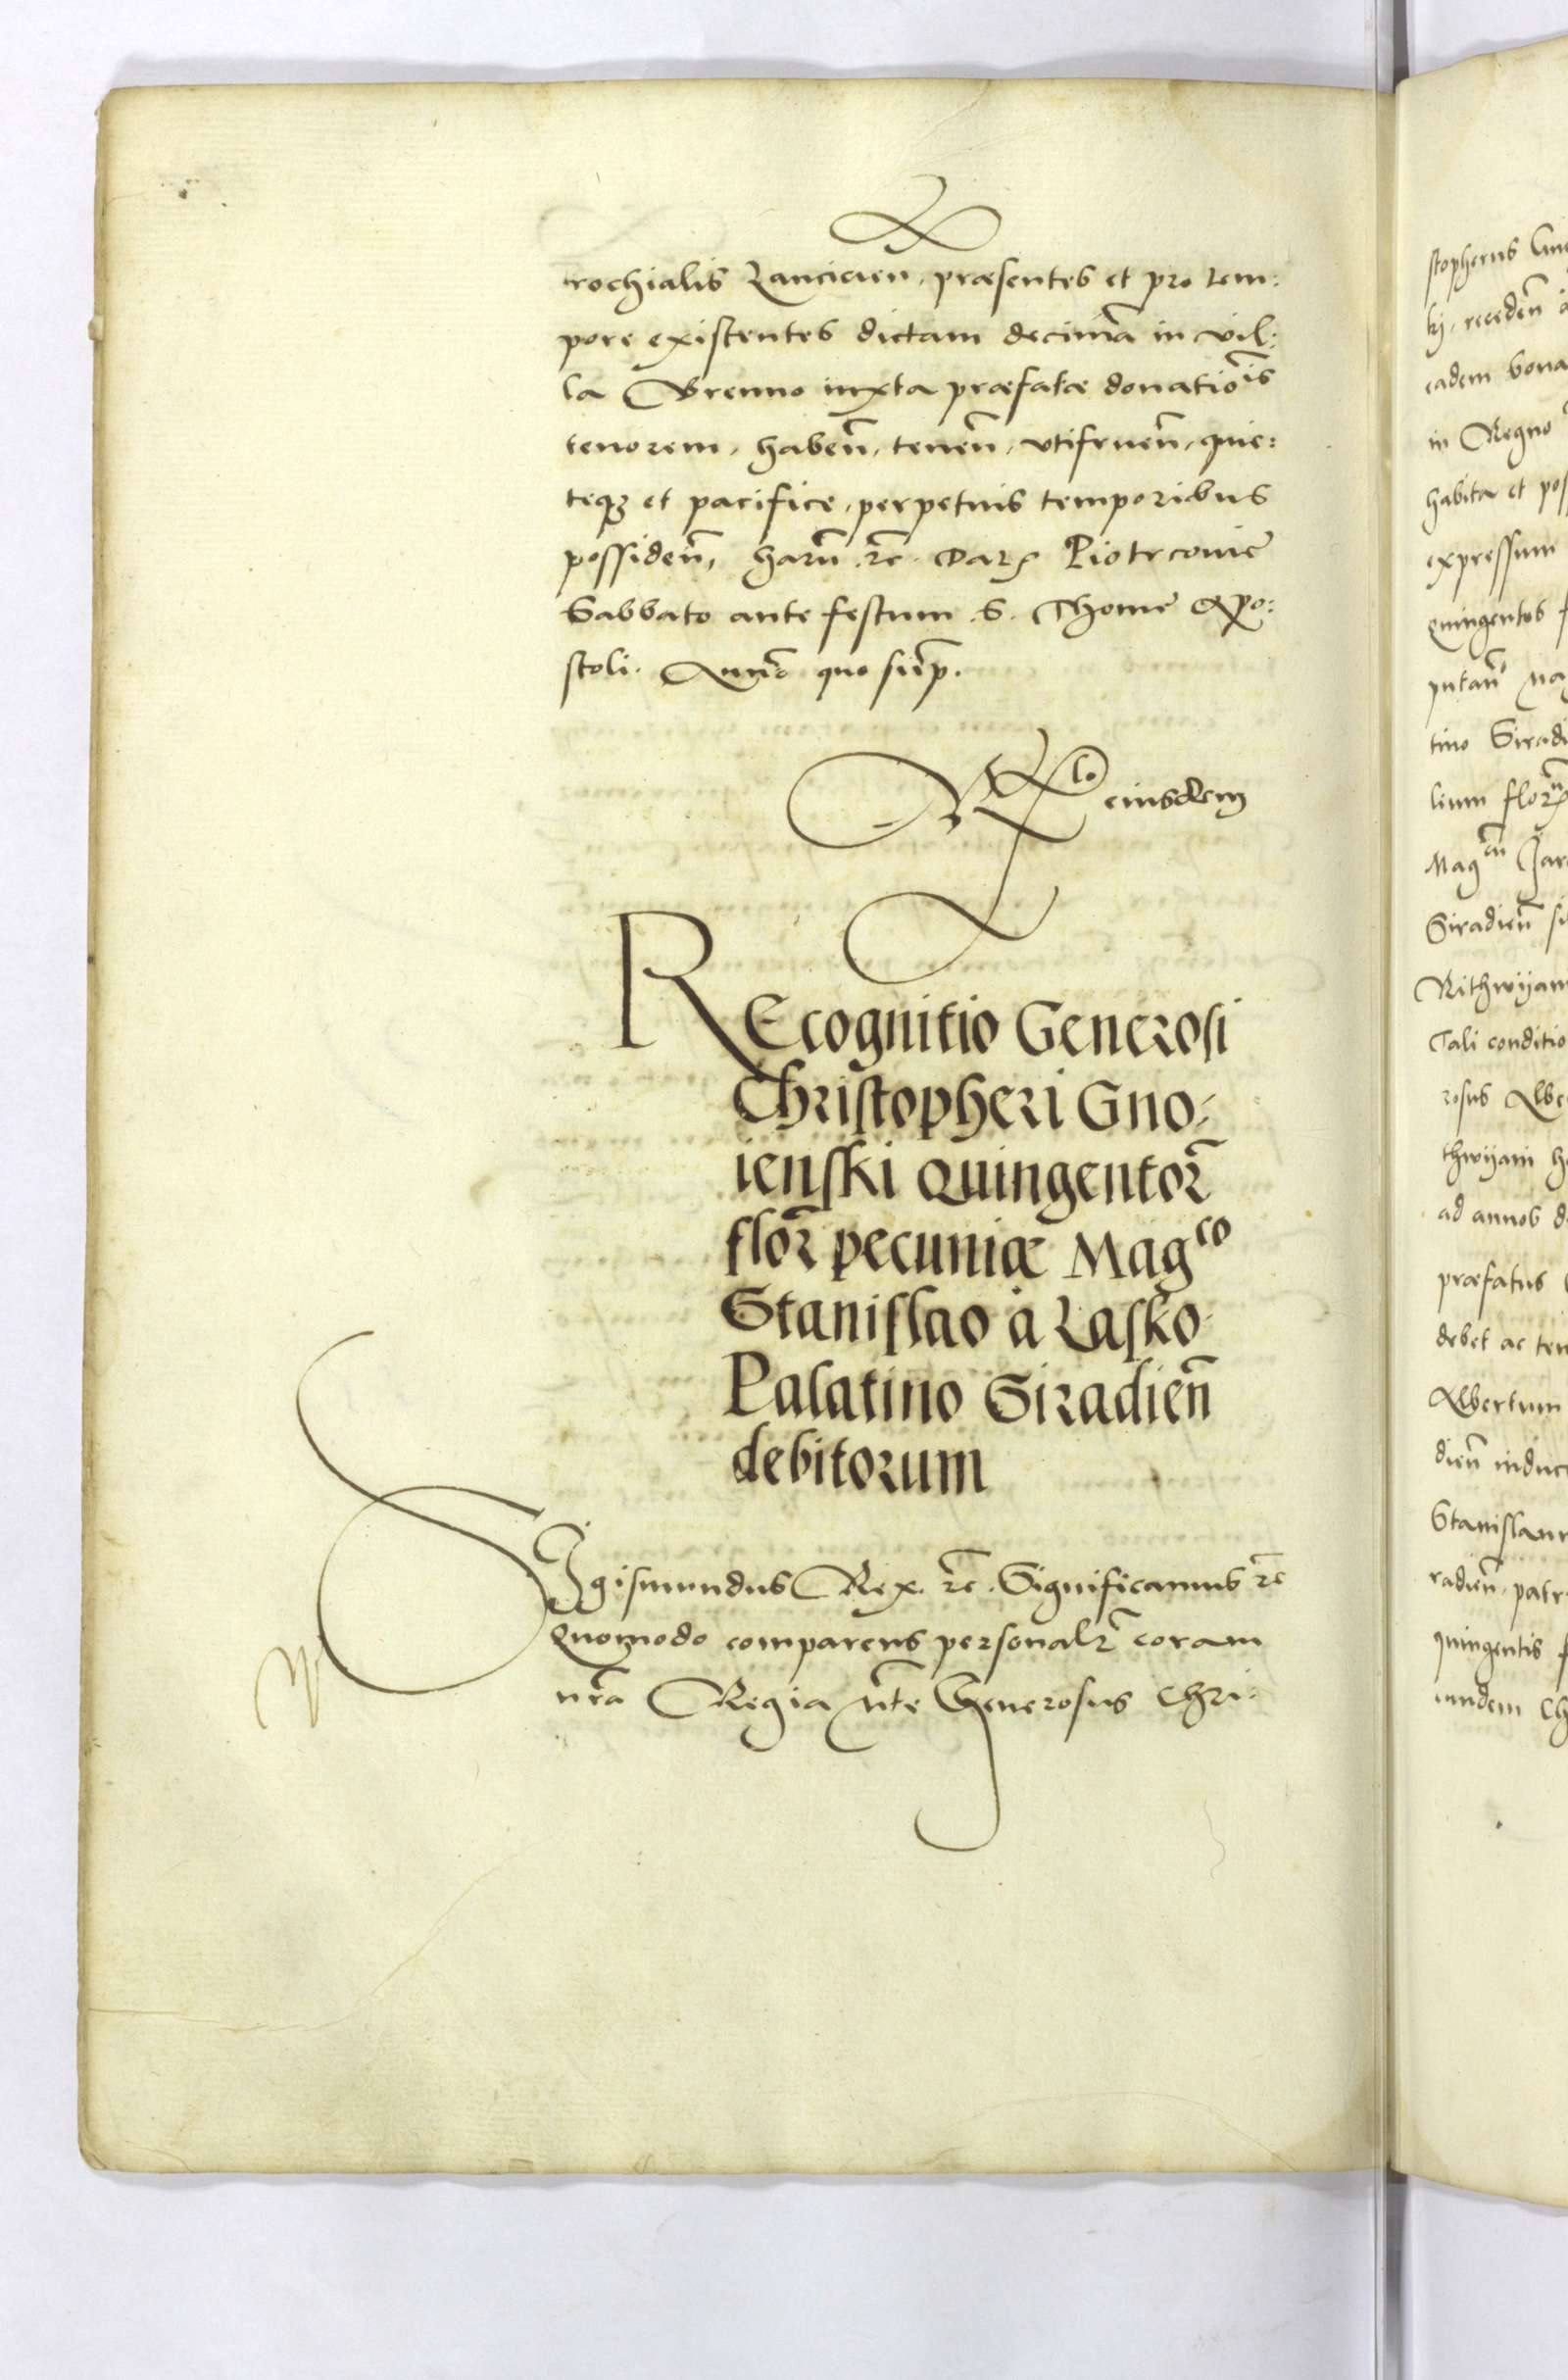 rochialis Lancicien, præsentes et pro tem:
pore existentes dictam decimā in vil:
la Brenno iuxta præfatæ donatiōis
tenorem, habeñ, teneñ, vtifrueñ, quie:
teqȝ et pacifice, perpetuis temporibus
possideñ, harū .rc̄. Datȝ Piotrcovie
Sabbato ante festum .S. Thome Apo:
stoli. Anno quo sup̄.
Rlo eiusdem
REcognitio Generosi
Christopheri Gno:
ienski Quingentoꝝ
floꝝ pecuniæ Magco
Stanislao à Lasko
Palatino Siradieñ
debitorum
SIgismundus Rex. rc̄. Significamus rc̄
Quomodo comparens personalr̄ coram
nr̄a Regia Mte Generosus Chri-
stopherus
ki, recedeñ
eadem bona
in Regno
habita et pos
expressum
quingentos f
putañ
tino Siradi
lium floꝝ
Magcū Jar
Siradieñ
Rithwÿan
Tali conditio
rosus Albe
thwÿani
ad annos d
præfatus
debet ac ten
Albertum
dieñ induc
Stanislaum
radieñ, pat
quingentis f
undem Ch